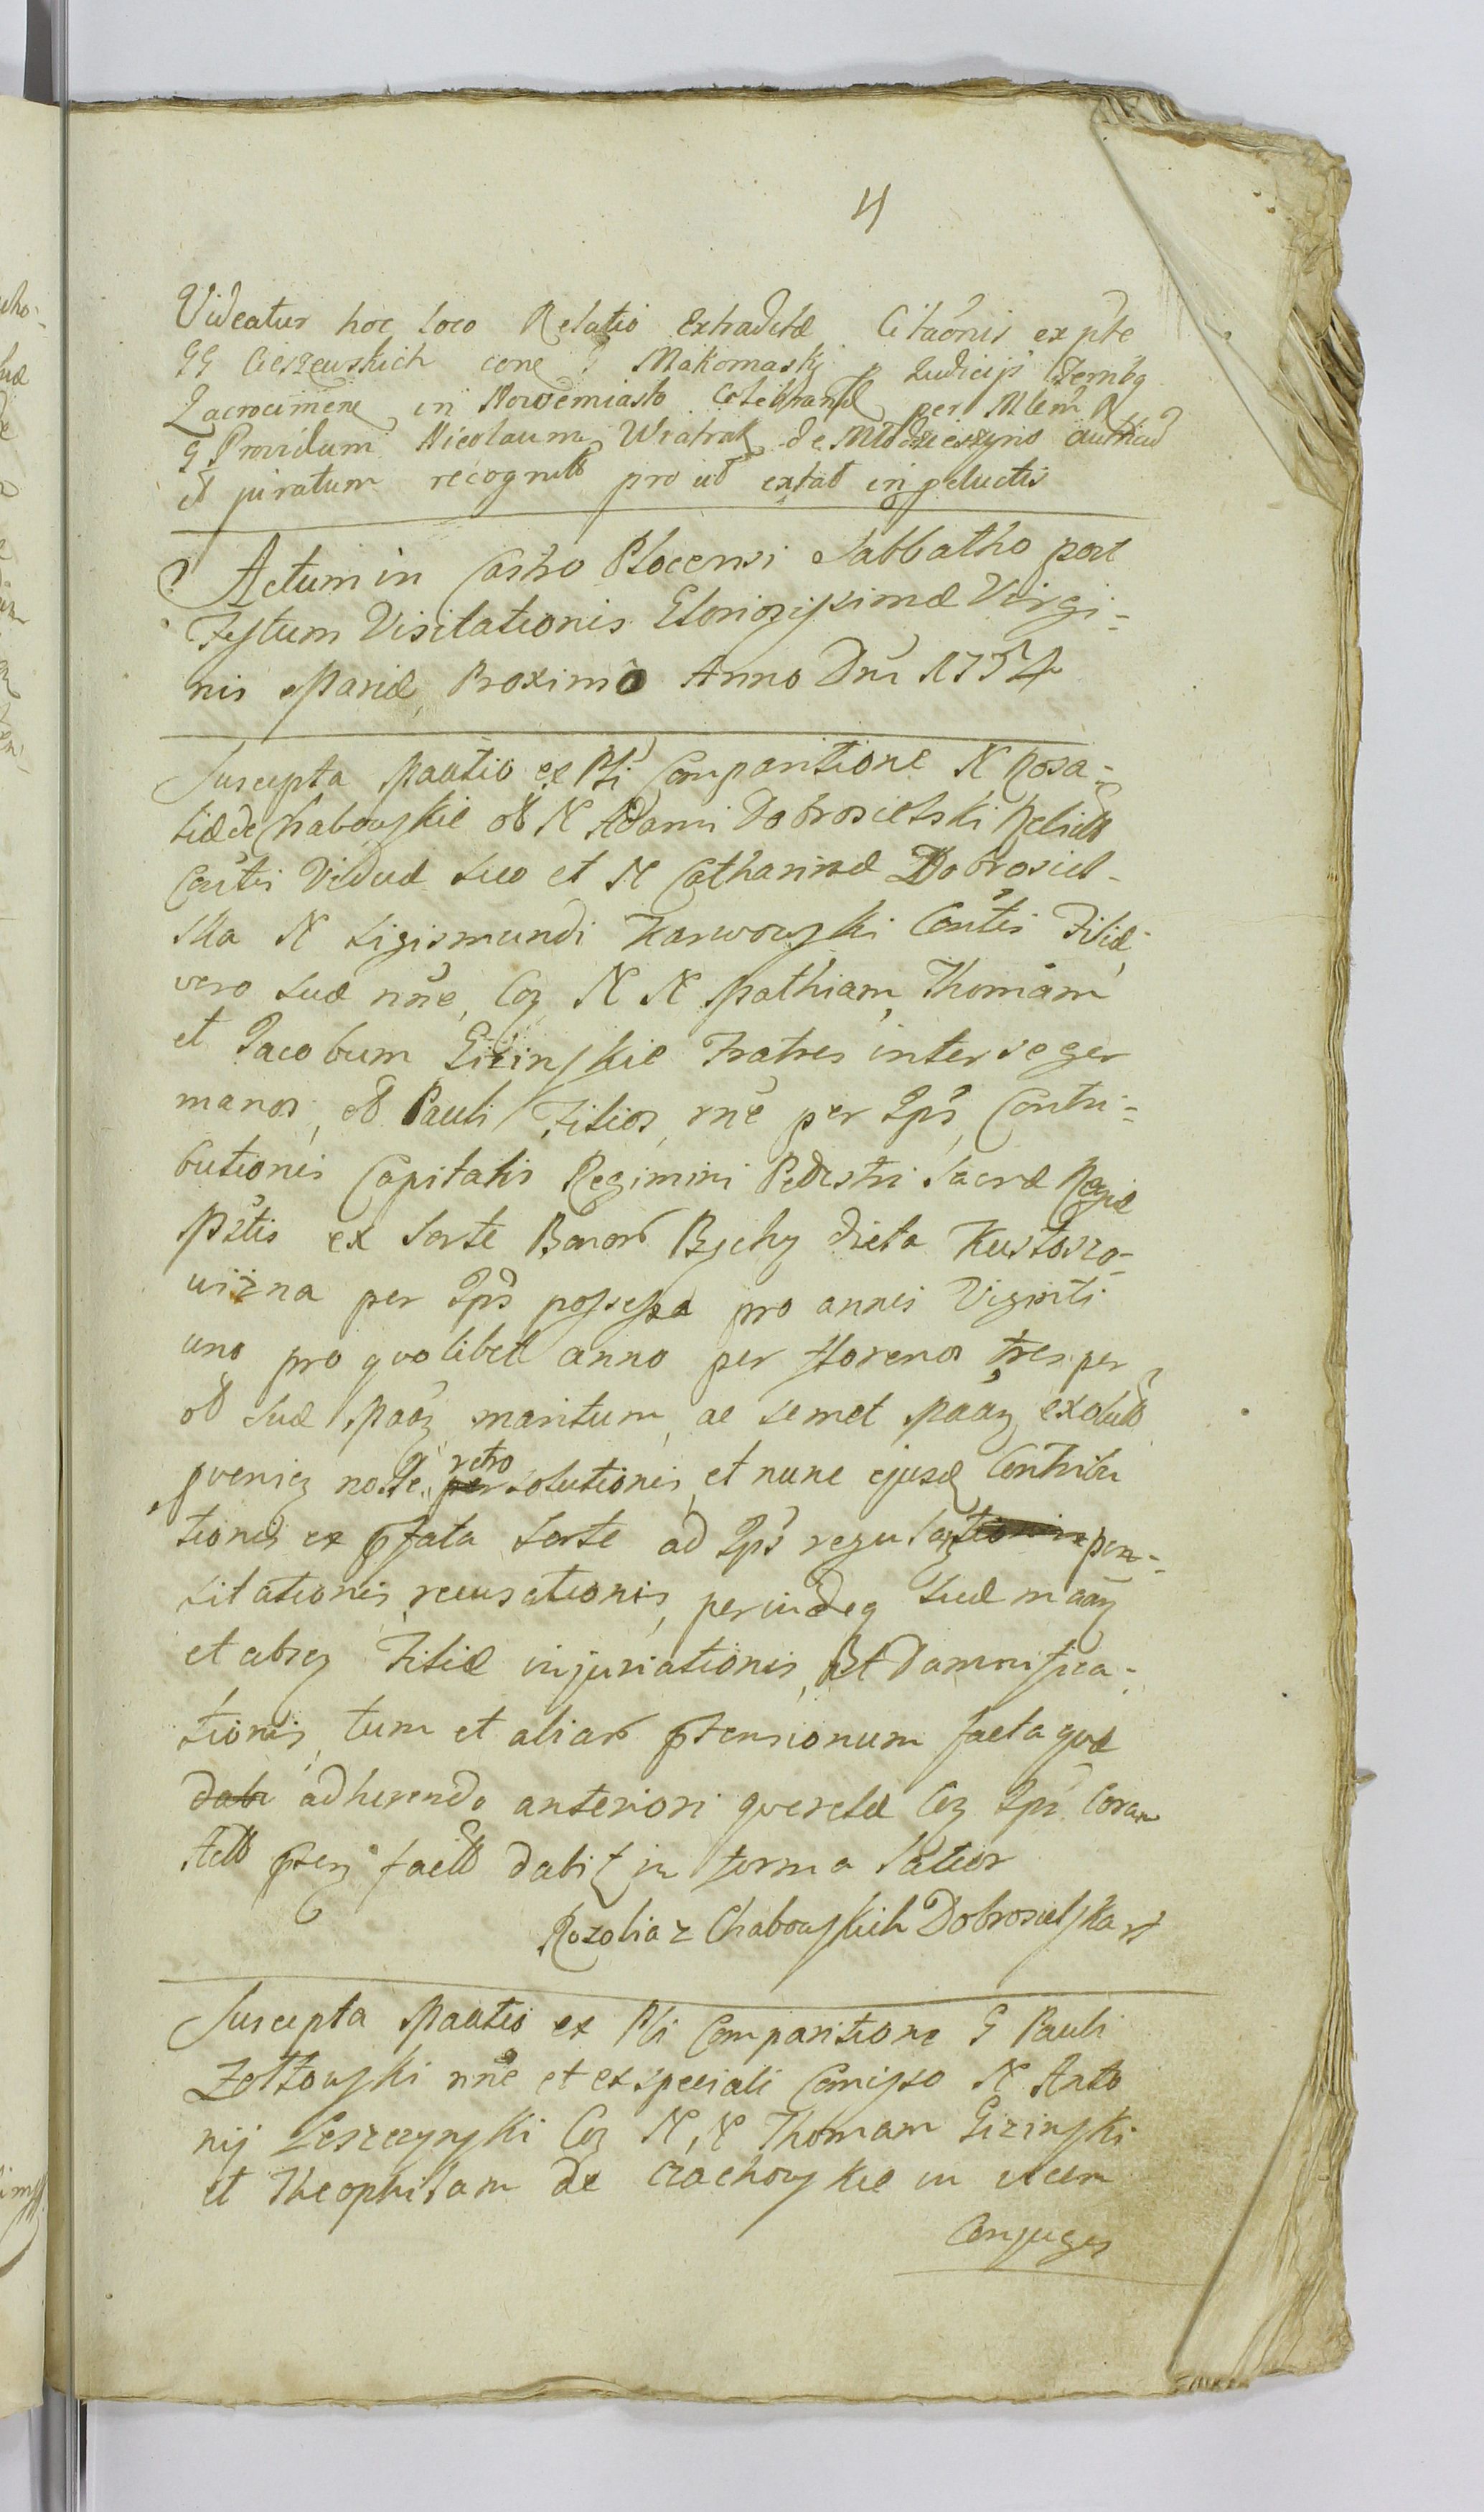 4
Videatur hoc loco Relatio Extraditæ Citaõnis ex pte
GG Cieszewskich cone G Makomaskį p Judicijs Zembg
Zacrocimene in Nowemiasto Celebrand per Mlem N
G Providum Nicolaum Wiatrak de Mlodzieszyno
et juratum recognit pro ut extat in peluctis
Actum in Castro Plocensi Sabbatho post
Festum Visitationis Gloriosissimæ Virgi-
nis Mariæ Proximo Anno Dni 1754
Suscepta Maatio ex Pli Comparitione N Rosa-
liæ de Chabowskie ol N Adami Dobrosielski Relicta
Contis Viduæ suo et N Catharinæ Dobrosiel-
ska N Sigismundi Karwowski Contis Filiæ
vero suæ nne, Coz N N Mathiam, Thomam
et Jacobum Gizinskie Fratres inter se ger
manos, ol Pauli Filios, rne per Ips, Contri-
butionis Capitalis Regimini Pedestri Sacræ Regiæ
Mttis ex Sorte Bonor Bychy dicta Kustoszo-
wizna per Ips possessa pro annis Viginti
uno pro quolibet anno per florenos tres per
ol suæ Maaz maritum, ac semet Maaz exolut
pveniez noste retro per solutionis, et nunc ejusd Contribu
tionis ex pfata Sorte ad Ips regulaz pen-
sitationis, recusationis, perindeq suæ maaz
et absez Filiæ injuriationis, Et Damnifica-
tionis, tum et aliar ptensionum facta quæ
dabi adherendo anteriori querelæ Coz Ips Coram
Actt psez factt dabit in forma Latior
Rozalia z Chabowskich Dobrosielska
Suscepta Maatio ex Pli Comparitione G Pauli
Zołtowski nne et ex speciali Comisso N Anto
nij Leszczynski Coz N, N Thomam Gizinski
et Theophilam de Czachowskie in vicem
Conjuges